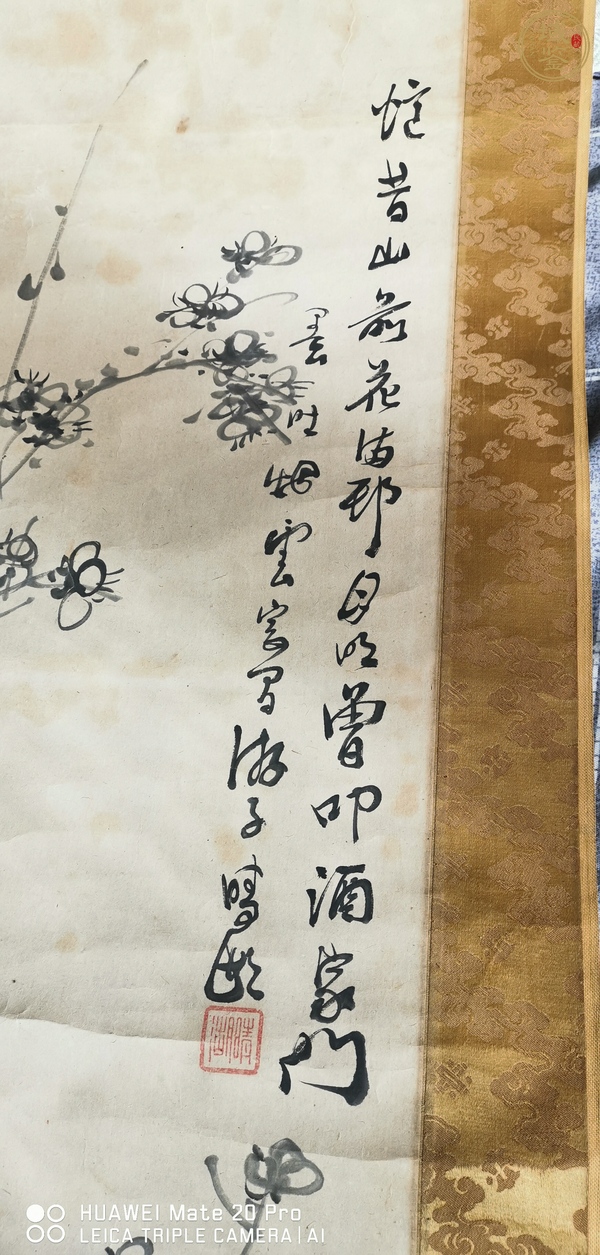 憶昔山前花滿邨月明曾叩酒家門
墨吐烟雲游子晴湖
晴湖
HUAWEI Mate 20 Pro
LEICA TRIPLE CAMERA | AI